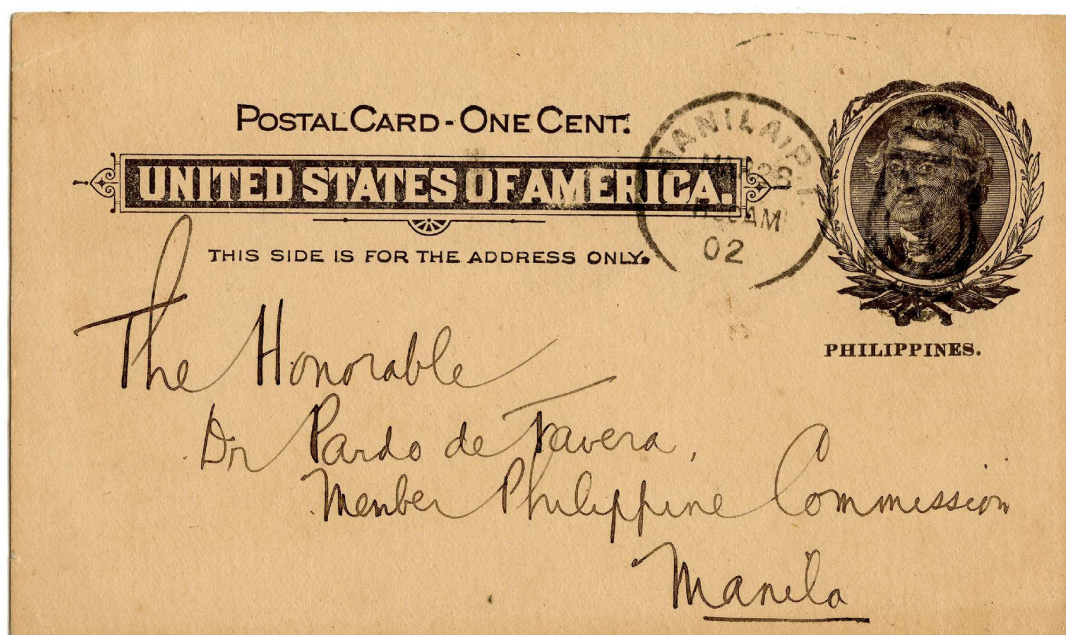 POSTAL CARD - ONE CENT.
UNITED STATES OF AMERICA.
THIS SIDE IS FOR THE ADDRESS ONLY.
MANILA, P.I.
AM
02
PHILIPPINES.
The Honorable
Dr Pardo de Tavera,
Member Philippine Commission
Manila